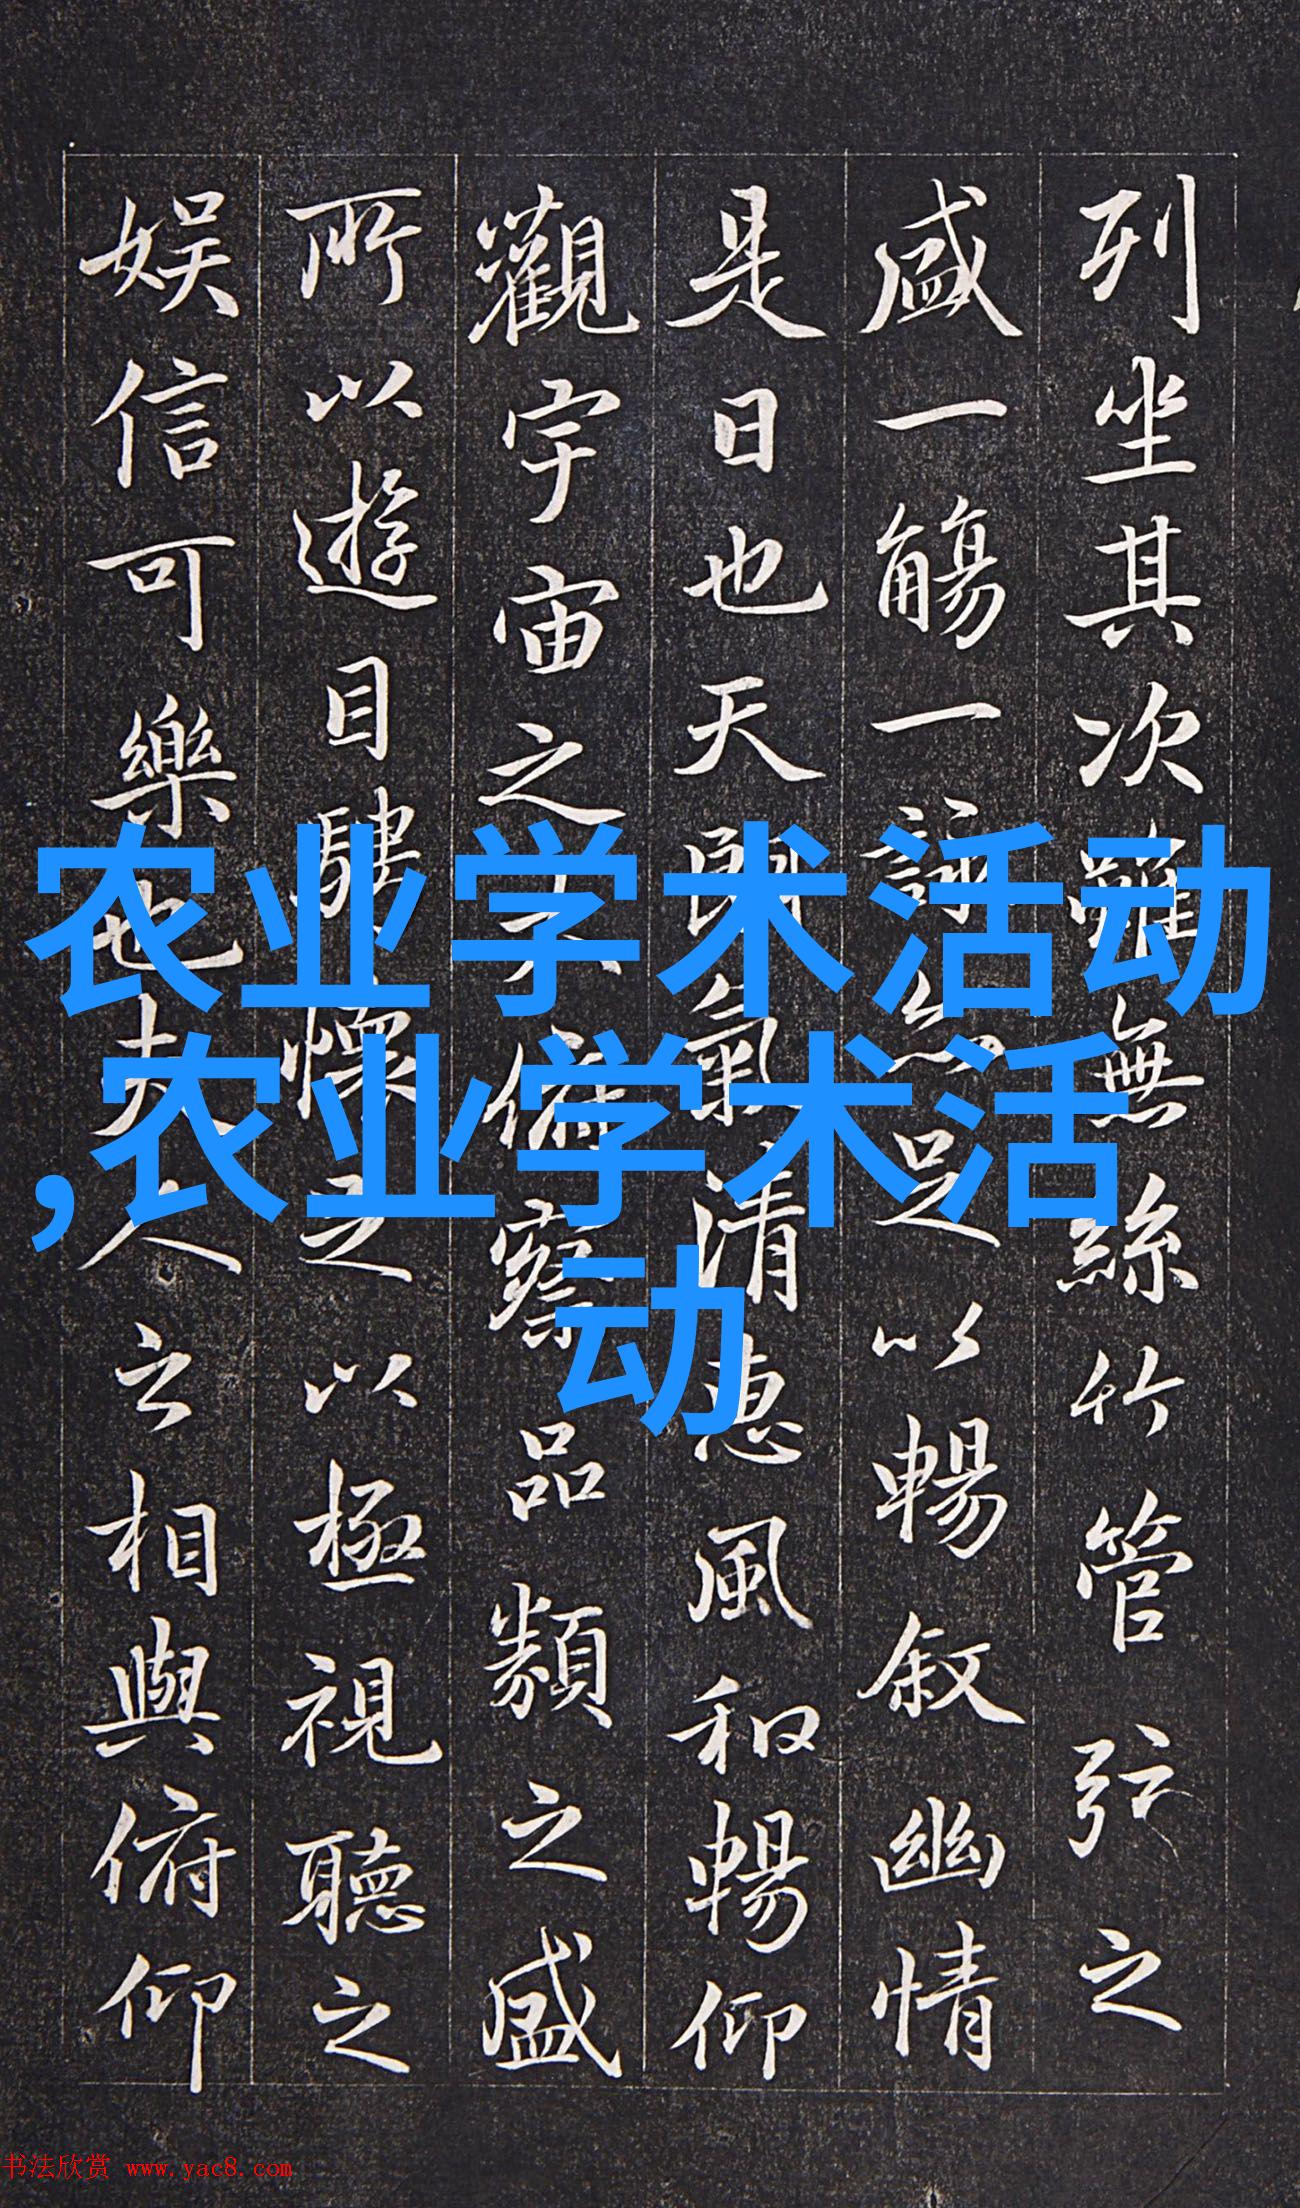 列坐其次雖無絲竹管弦之
盛一觴一詠亦足以暢叙幽情
是日也天朗氣清惠風和暢仰
觀宇宙之大俯察品類之盛
所以遊目騁懷之以極視聽之
娱信可樂也夫人之相與俯仰
农业学术活动
,农业学术活
动
书法欣赏 www.yac8.com